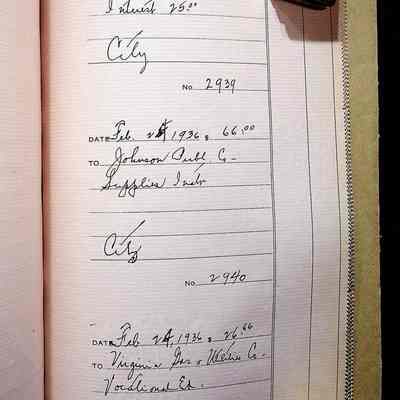 Interest 25.00
City
No. 2939
DATE Feb. 24, 1936 $ 66.00
TO Johnson Publ. Co.
Supplies Instr
City
No. 2940
DATE Feb 24, 1936 $ 26.66
TO Virginia Gas & Co.
Vocational Ed.